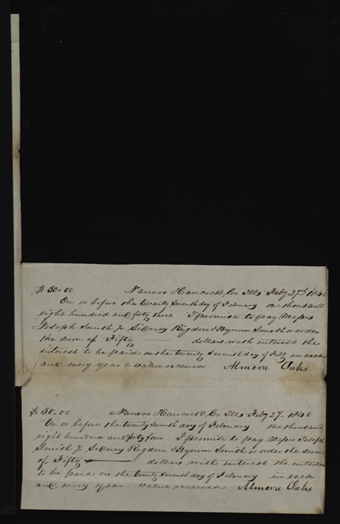 $ 50.00 Nauvoo Hancock Co Ills Feby 27th 1840
On or before the twenty seventh day of February one thousand
eight hundred and forty three I promise to pay Messrs
Joseph Smith Jr Sidney Rigdon & Hyrum Smith or order
the sum of Fifty dollars with interest the
interest to be paid on the twenty seventh day of Feby in each
and every year value received Almera Oaks
$ 50.00 Nauvoo Hancock Co Ills Feby 27. 1840
On or before the twenty seventh day of February one thousand
eight hundred and forty four I promise to pay Messrs Joseph
Smith Jr Sidney Rigdon & Hyrum Smith or order the sum
of Fifty dollars with interest the interest
to be paid on the twenty seventh day of February in each
and every year value received Almera Oaks